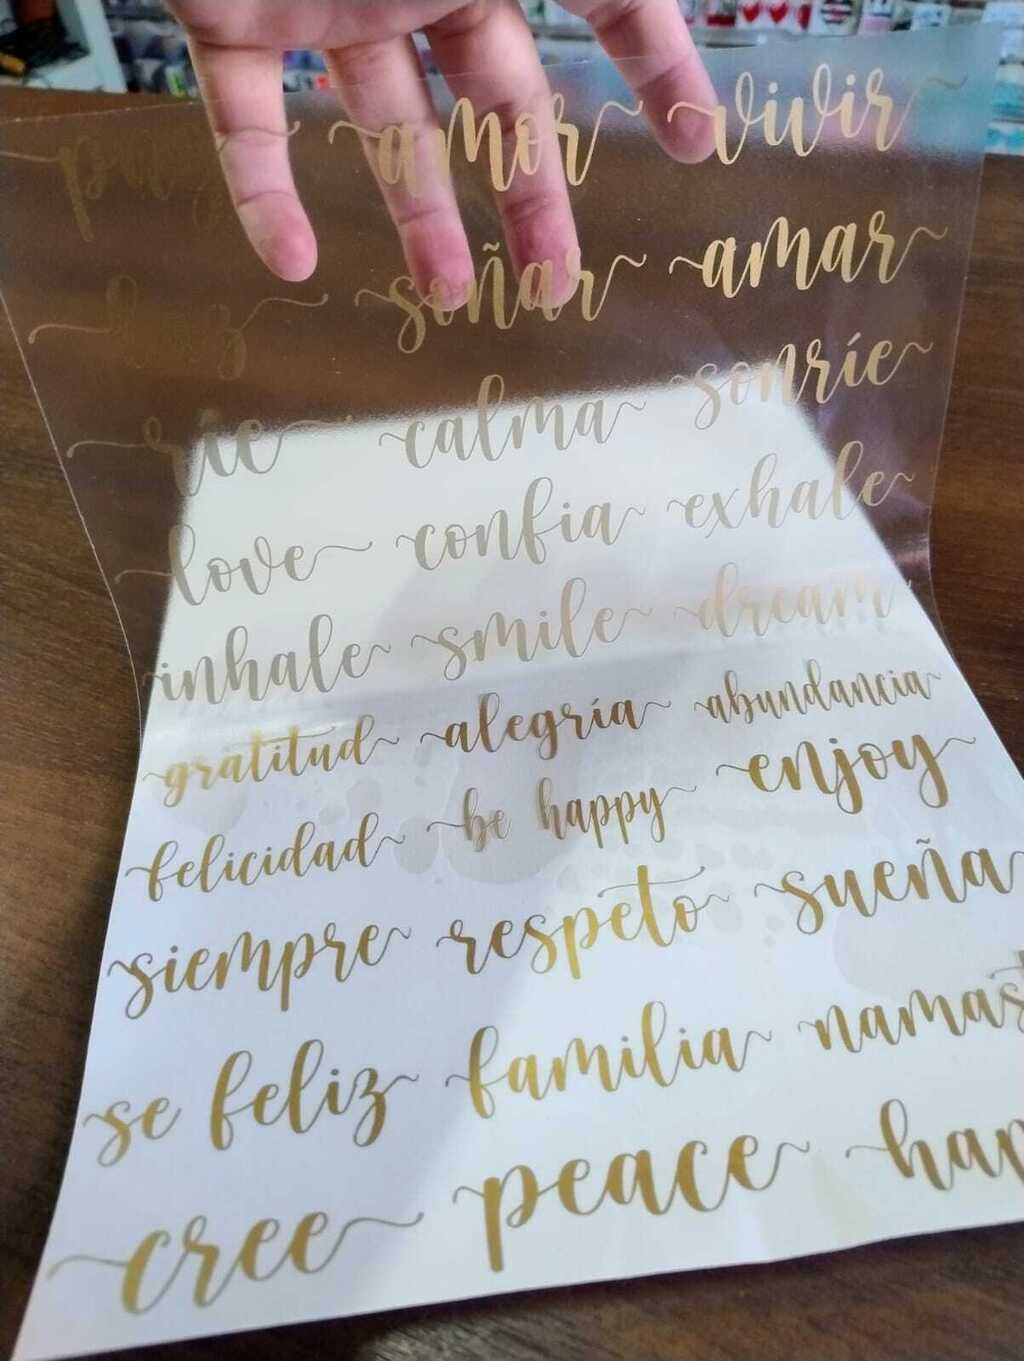 paz amor vivir
luz soñar amar
ríe calma sonríe
love confía exhale
inhale smile dream
gratitud alegría abundancia
felicidad be happy enjoy
siempre respeto sueña
se feliz familia
cree peace